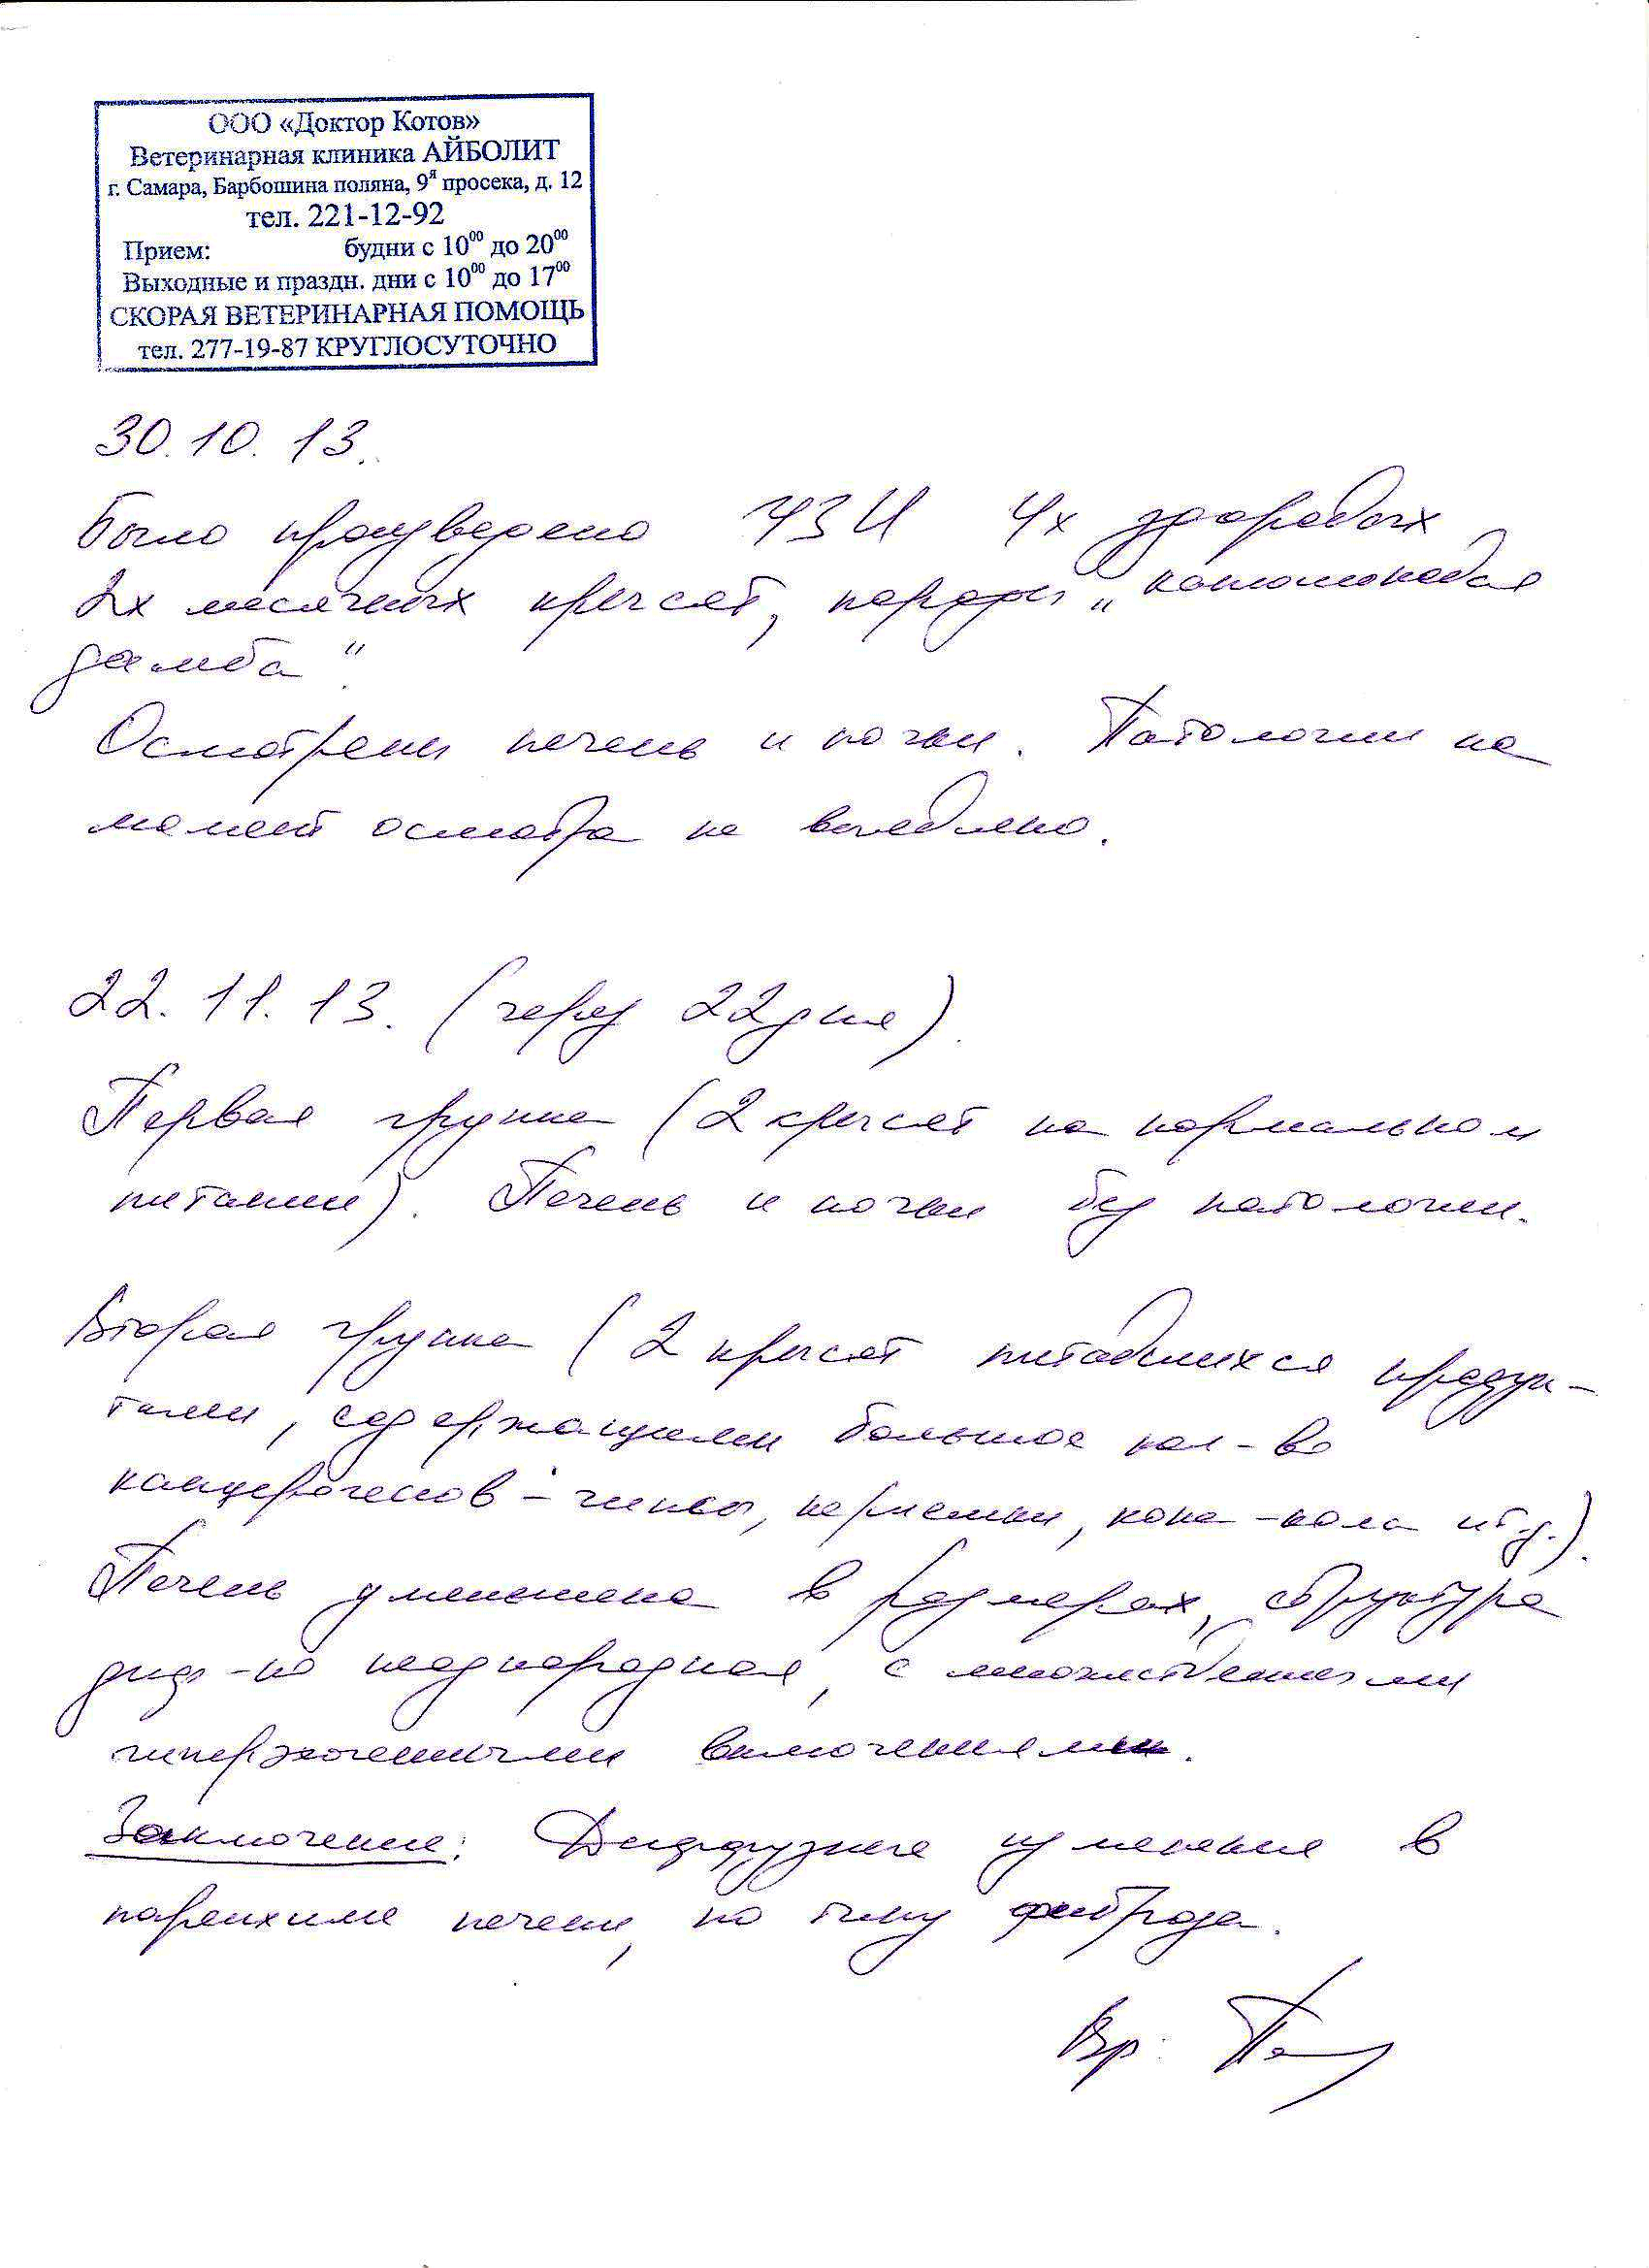 ООО «Доктор Котов»
Ветеринарная клиника АЙБОЛИТ
г. Самара, Барбошина поляна, 9я просека, д. 12
тел. 221-12-92
Прием: будни с 10⁰⁰ до 20⁰⁰
Выходные и праздн. дни с 10⁰⁰ до 17⁰⁰
СКОРАЯ ВЕТЕРИНАРНАЯ ПОМОЩЬ
тел. 277-19-87 КРУГЛОСУТОЧНО
30.10.13.
Было произведено УЗИ 4х здоровых
2х месячных крысят, породы „
дамба".
Осмотрены печень и почки. Патологии на
момент осмотра не выявлено.
22.11.13. (через 22 дня).
Первая группа (2 крысят на нормальном
питании). Печень и почки без патологии.
Вторая группа (2 крысят питавшихся продук-
тами, содержащими большое кол-во
канцерогенов - чипсы, кириешки, кока-кола итд.).
Печень уменьшена в размерах, структура
диф-но неоднородная, с множественными
гиперэхогенными включениями.
Заключение: Диффузные изменения в
паренхиме печени, по типу фиброза.
Вр: